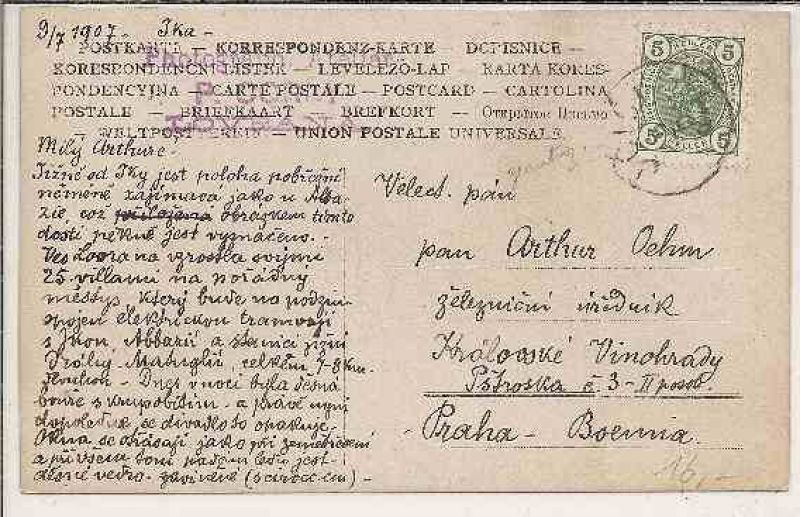 9/7 1907. Ika -
POSTKARTE — KORRESPONDENZ-KARTE — DOPISNICE —
KORESPONDENČNI LISTEK — LEVELEZÖ-LAP — KARTA KORES-
PONDENCYJNA — CARTE POSTALE — POSTCARD — CARTOLINA
POSTALE — BRIEFKAART — BREFKORT — Открытое Письмо
— WELTPOSTVEREIN — UNION POSTALE UNIVERSALE.
5 5
5 5
HELLER
Milý Arthure!
Jižně od Iky jest poloha pobřežní
neméně zajímavá jako u Abba-
zie, což obrazkem tímto
dosti pěkně jest vyznačeno. -
Ves Lovrana vzrostla svými
25 villami na pořádný
městys, který bude na podzim
spojen elektrickou tramvají
s Ikou, Abbazií a stanicí jižní
dráhy Matuglii, celkem 7-8 km.
- Dnes v noci byla děsná
bouře s krupobitím - a právě nyní
dopoledne se divadlo to opakuje.
Okna se otřásají jako při zemětřesení
a při všem tom jest
děsné vedro. (scirocem) -
Velect. pán
pan Arthur Oehm
železniční úředník
Královské Vinohrady
Pštroska č 3 - II posch
Praha - Boemia.
16,-